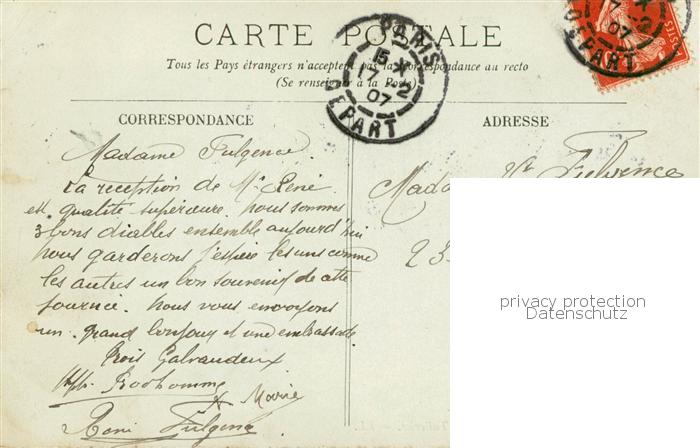 CARTE POSTALE
Tous les Pays étrangers n'acceptent pas la correspondance au recto
(Se renseigner à la Poste)
PARIS
15 X
17 - 2
07
DEPART
17 - 2
07
DEPART
CORRESPONDANCE
ADRESSE
Madame Fulgence.
La reception de Mr René
est qualité supérieure. nous sommes
3 bons diables ensemble aujourd'hui
nous garderons j'espère les uns comme
les autres un bon souvenir de cette
journée. Nous vous envoyons
un grand bonjour et une embrassade
Trois Galvaudeux
Prodhomme
Marie
René Fulgence
Madame Vve Fulgence
23
privacy protection
Datenschutz